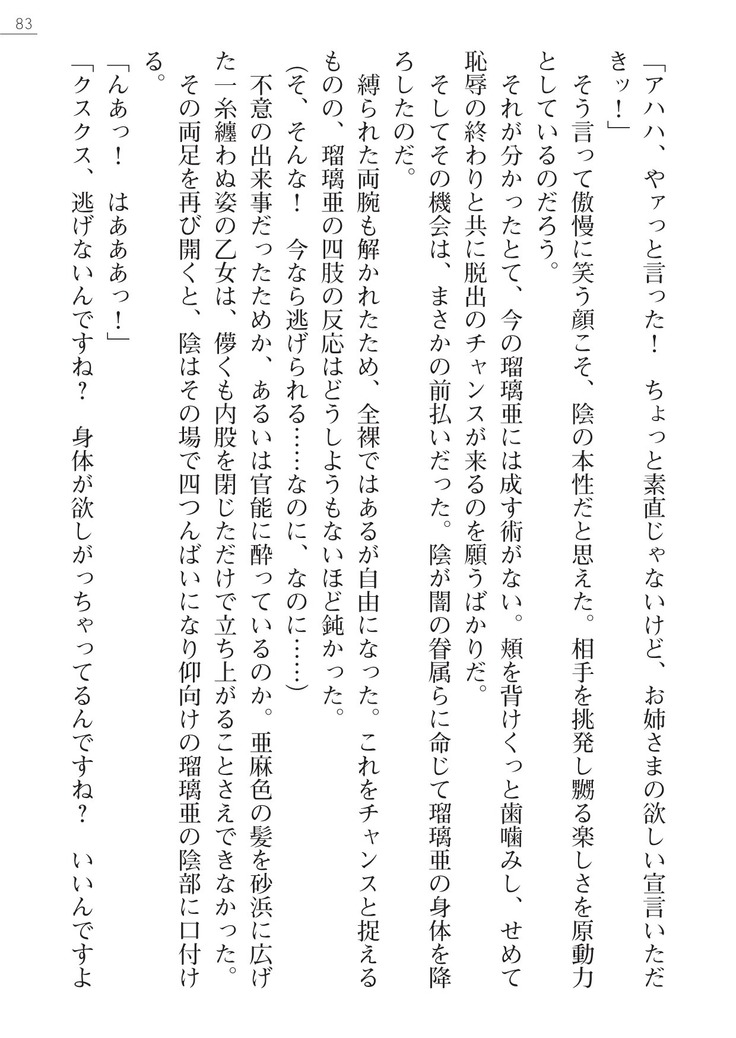 83
「アハハ、やァっと言った！　ちょっと素直じゃないけど、お姉さまの欲しい宣言いただ
きッ！」
　そう言って傲慢に笑う顔こそ、陰の本性だと思えた。相手を挑発し嬲る楽しさを原動力
としているのだろう。
　それが分かったとて、今の瑠璃亜には成す術がない。頬を背けくっと歯噛みし、せめて
恥辱の終わりと共に脱出のチャンスが来るのを願うばかりだ。
　そしてその機会は、まさかの前払いだった。陰が闇の眷属らに命じて瑠璃亜の身体を降
ろしたのだ。
　縛られた両腕も解かれたため、全裸ではあるが自由になった。これをチャンスと捉える
ものの、瑠璃亜の四肢の反応はどうしようもないほど鈍かった。
（そ、そんな！　今なら逃げられる……なのに、なのに……）
　不意の出来事だったためか、あるいは官能に酔っているのか。亜麻色の髪を砂浜に広げ
た一糸纏わぬ姿の乙女は、儚くも内股を閉じただけで立ち上がることさえできなかった。
　その両足を再び開くと、陰はその場で四つんばいになり仰向けの瑠璃亜の陰部に口付け
る。
「んあっ！　はあああっ！」
「クスクス、逃げないんですね？　身体が欲しがっちゃってるんですね？　いいんですよ